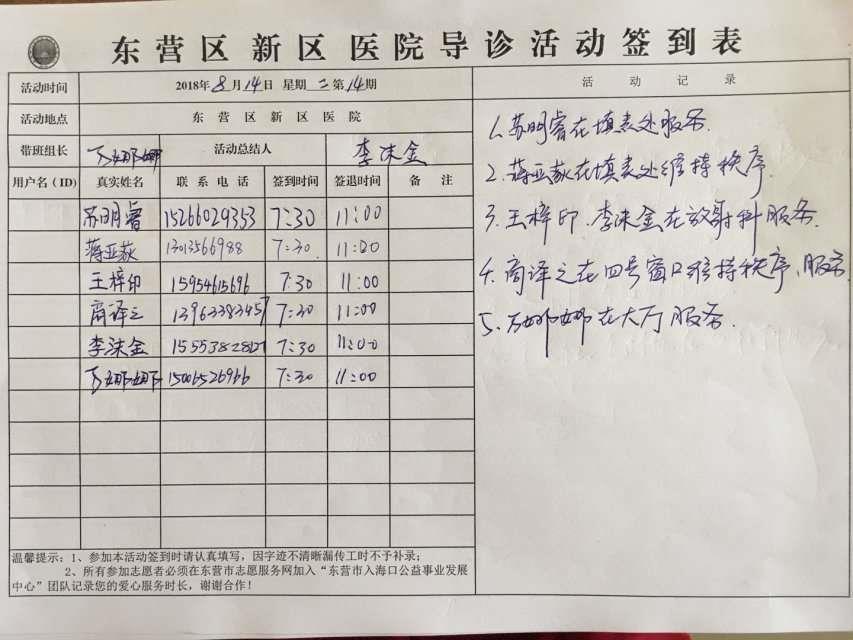 东营区新区医院导诊活动签到表
活动时间 2018年8月14日 星期二第14期
活动地点 东营区新区医院
带班组长 万娜娜 活动总结人 李沫金
用户名(ID) 真实姓名 联系电话 签到时间 签退时间 备注
苏明睿 15266029353 7:30 11:00
蒋亚荻 13013566988 7:30. 11:00
王梓印 15954615696 7:30 11:00
商译之 13963383457 7:30 11:00
李沫金 7:30 11:00
万娜娜 15006526966 7:30 11:00
温馨提示:1、参加本活动签到时请认真填写,因字迹不清晰漏传工时不予补录;
2、所有参加志愿者必须在东营市志愿服务网加入“东营市入海口公益事业发展
中心”团队记录您的爱心服务时长,谢谢合作!
活动记录
1.苏明睿在填表处服务.
2.蒋亚荻在填表处维持秩序.
3.王梓印.李沫金在放射科服务.
4.商译之在四号窗口维持秩序、服务
5.万娜娜在大厅服务.